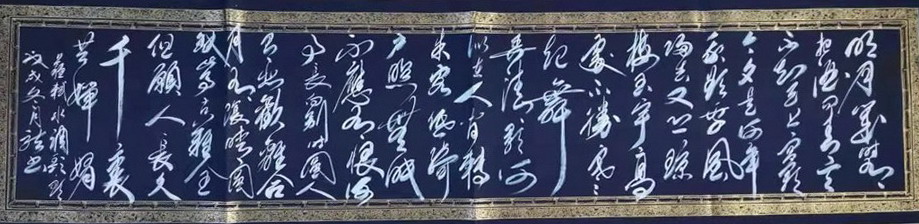 明月幾時有
把酒問青天
不知天上宮闕
今夕是何年
我欲乘風
歸去又恐瓊
樓玉宇高
處不勝寒
起舞
弄清影何
似在人間轉
朱閣低綺
戶照無眠
不應有恨何
事長別時圓人
有悲歡離合
月有陰晴圓
缺此事古難全
但願人長久
千里
共嬋娟
蘇軾水調歌頭
戊戌冬月書